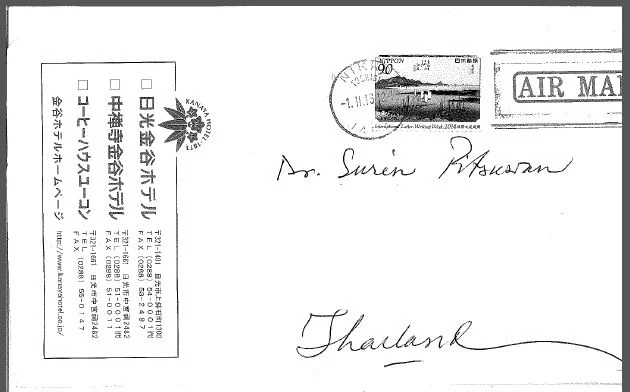 □ 日光金谷ホテル
〒321-1401 日光市上鉢石町1300
TEL (0288) 54-0001㈹
FAX (0288) 53-2487
□ 中禅寺金谷ホテル
〒321-1661 日光市中宮祠2482
TEL (0288) 51-0001㈹
FAX (0288) 51-0011
□ コーヒーハウスユーコン
〒321-1661 日光市中宮祠2482
TEL・FAX (0288) 55-0147
金谷ホテルホームページ http://www.kanayahotel.co.jp/
KANAYA HOTEL 1873
NIPPON 日本郵便
90
International Letter Writing Week
NIKKO
-1.11.13
AIR MAI
Dr. Surin Pitsuwan
Thailand